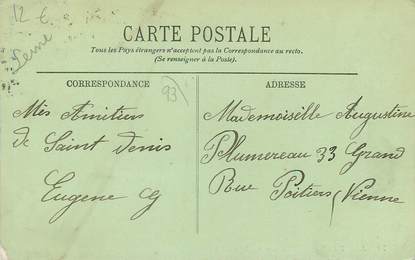 12 €
Seine
CARTE POSTALE
Tous les Pays étrangers n'acceptent pas la Correspondance au recto.
(Se renseigner à la Poste).
CORRESPONDANCE
93
ADRESSE
Mes Amitiés
de Saint Denis
Eugene G
Mademoiselle Augustine
Plumereau 33 Grand
Rue Poitiers (Vienne